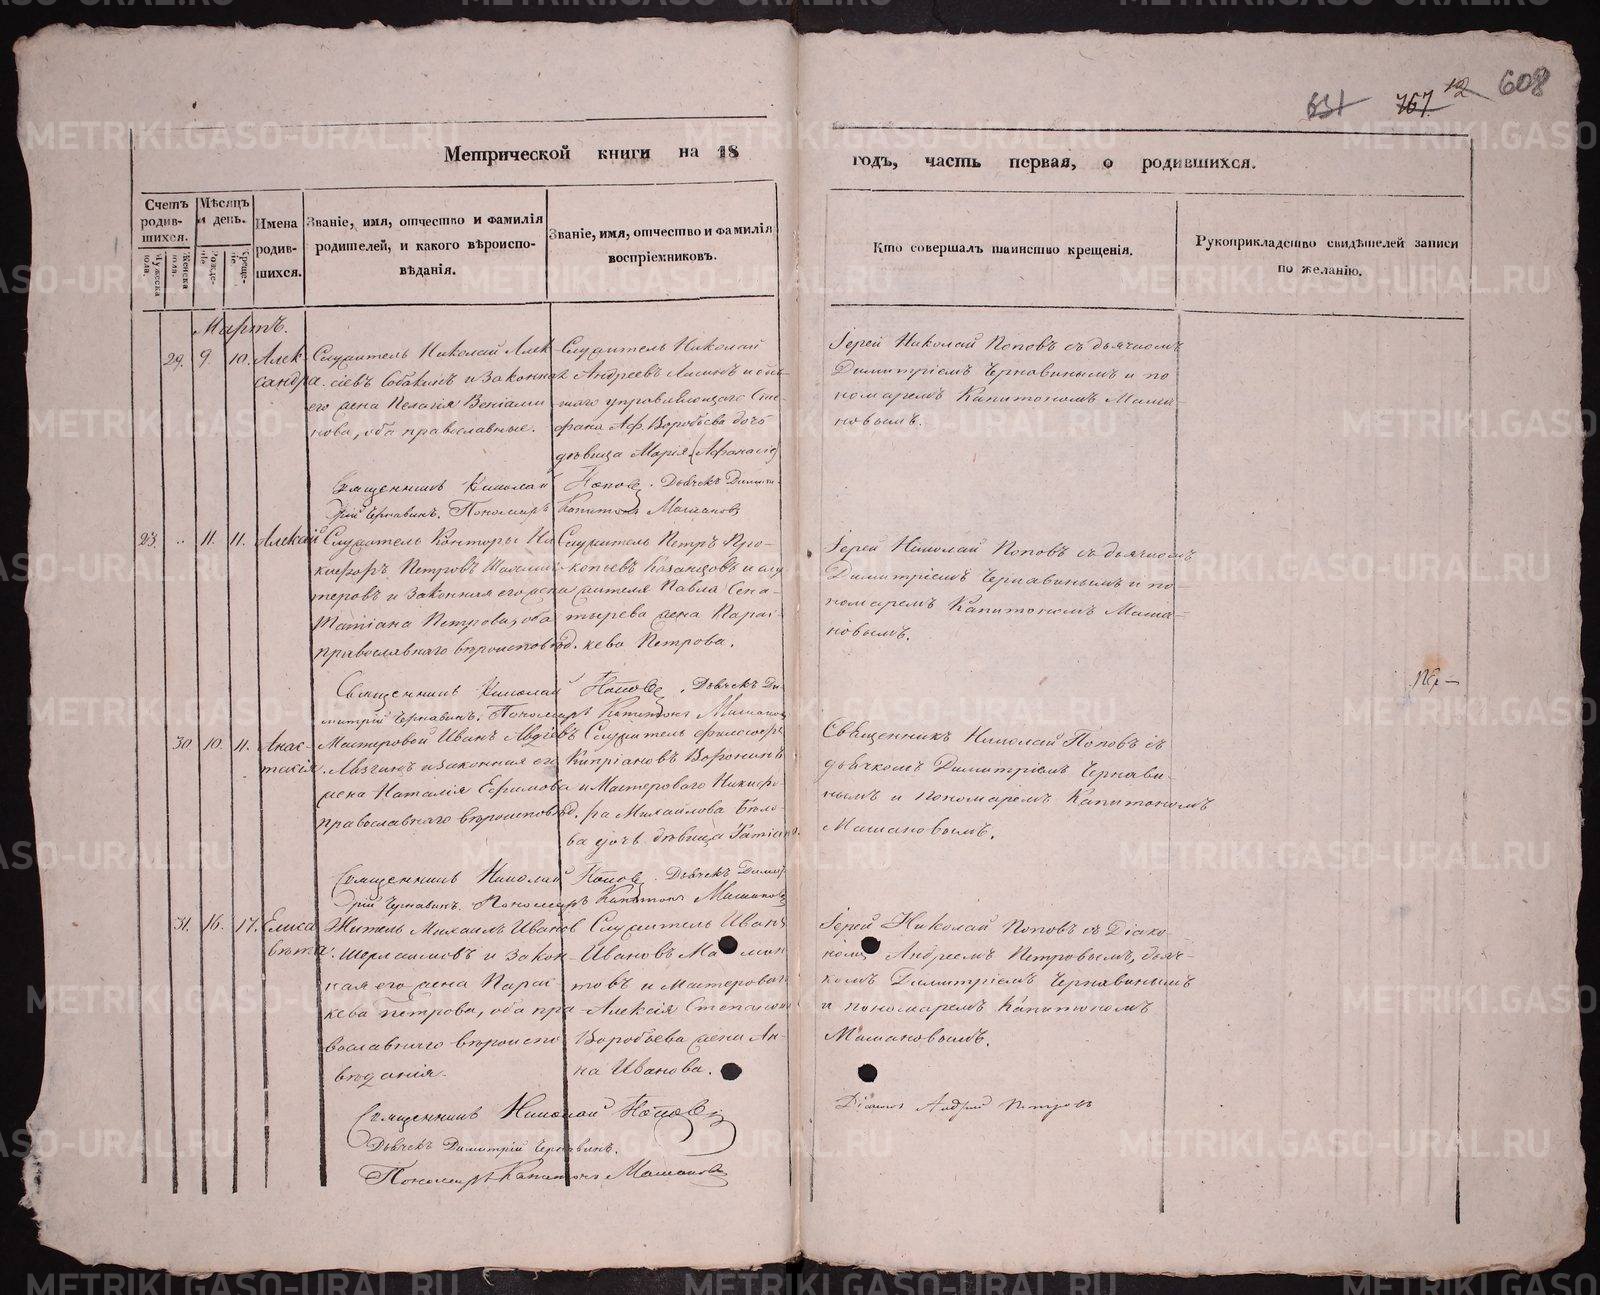 631 767 12 608
Метрической книги на 18 годъ, часть первая, о родившихся.
Счетъ родив-шихся.
Мужеска пола.
Женска пола.
Мѣсяцъ и день.
Рожде-
Креще-
Имена родив-шихся.
Званіе, имя, отчество и фамилія родителей, и какого вѣроиспо-вѣданія.
Званіе, имя, отчество и фамилія воспріемниковъ.
Кто совершалъ таинство крещенія.
Рукоприкладство свидѣтелей записи по желанію.
Мартъ.
29. 9. 10. Алек-
сандра.
Служитель Николай Алек-
сіевъ Собакинъ и законная
его жена Пелагія Веніами
нова, оба православные.
Служитель Николай
Андреевъ
управляющаго Сте-
фана Аф. Воробьева дочь
дѣвица Марія
Іерей Николай Поповъ съ дьячкомъ
Димитріемъ Чернавинымъ и по
номаремъ Капитономъ Маша-
новымъ.
Священникъ Николай Поповъ. Дьячекъ Димит-
рій Чернавинъ. Пономарь Капитонъ Машановъ
23. .. 11. 11. Алексій
Служитель Конторы Ни
кифоръ Петровъ
и законная его жена
Татіана Петрова, оба
православнаго вѣроисповѣд.
Служитель Петръ Про-
копьевъ Казанцовъ и слу
жителя Павла Сена-
тырева жена Парас-
кева Петрова.
Іерей Николай Поповъ съ дьячкомъ
Димитріемъ Чернавинымъ и по
номаремъ Капитономъ Маша-
новымъ.
Священникъ Николай Поповъ. Дьячекъ Ди-
митрій Чернавинъ. Пономарь Капитонъ Машановъ
30. 10. 11. Анас-
тасія.
Мастеровой Иванъ Авдѣевъ
и законная его
жена Наталія Ефимова
православнаго вѣроисповѣд.
Служитель
Кипріановъ Воронинъ
и Мастероваго Никифо-
ра Михайлова Бѣло-
ва дочь дѣвица Татіана.
Священникъ Николай Поповъ съ
дьячкомъ Димитріемъ Чернави-
нымъ и пономаремъ Капитономъ
Машановымъ.
Священникъ Николай Поповъ. Дьячекъ Димит
рій Чернавинъ. Пономарь Капитонъ Машановъ
31. 16. 17. Елиса
вѣта.
Житель Михаилъ Ивановъ
и закон-
ная его жена Парас
кева Петрова, оба пра-
вославнаго вѣроиспо
вѣданія.
Служитель Иванъ
Ивановъ
и Мастероваго
Алексія Степанова
Воробьева жена Ан-
на Иванова.
Іерей Николай Поповъ съ Діако-
номъ Андреемъ Петровымъ, дьяч-
комъ Димитріемъ Чернавинымъ
и пономаремъ Капитономъ
Машановымъ.
Священникъ Николай Поповъ
Діаконъ Андрей Петровъ
Дьячекъ Димитрій Чернавинъ.
Пономарь Капитонъ Машановъ
METRIKI.GASO-URAL.RU